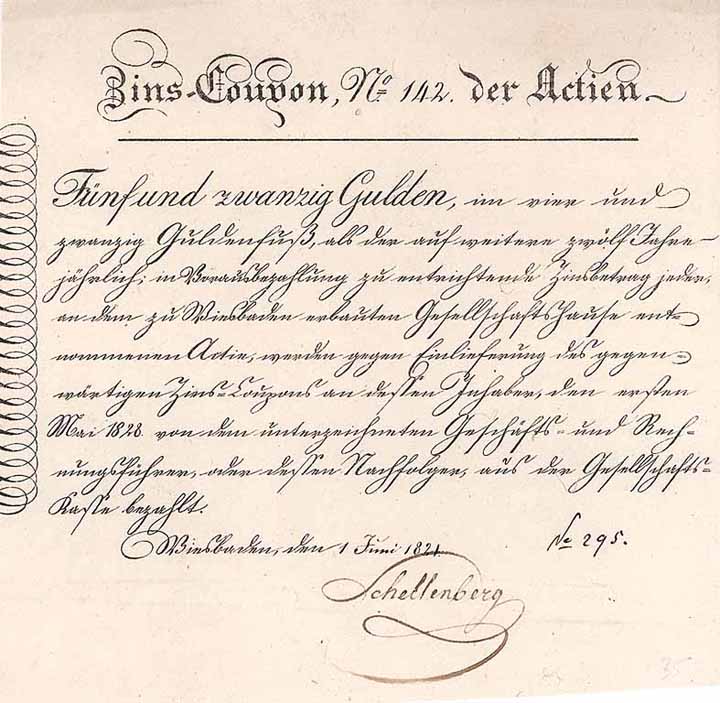 Zins-Coupon, No 142. der Actien.
Fünf und zwanzig Gulden, im vier und
zwanzig Guldenfuß, als der auf weitere zwölf Jahre
jährlich, in Vorausbezahlung zu entrichtende Zinsbetrag jeder,
an dem zu Wiesbaden erbauten Gesellschaftshause ent-
nommenen Actie, werden gegen Einlieferung des gegen-
wärtigen Zins-Coupons an dessen Inhaber, den ersten
Mai 1828 von dem unterzeichneten Geschäfts- und Rech-
nungsführer, oder dessen Nachfolger, aus der Gesellschafts-
Kasse bezahlt.
Wiesbaden, den 1 Juni 1821. No 295.
Schellenberg
35